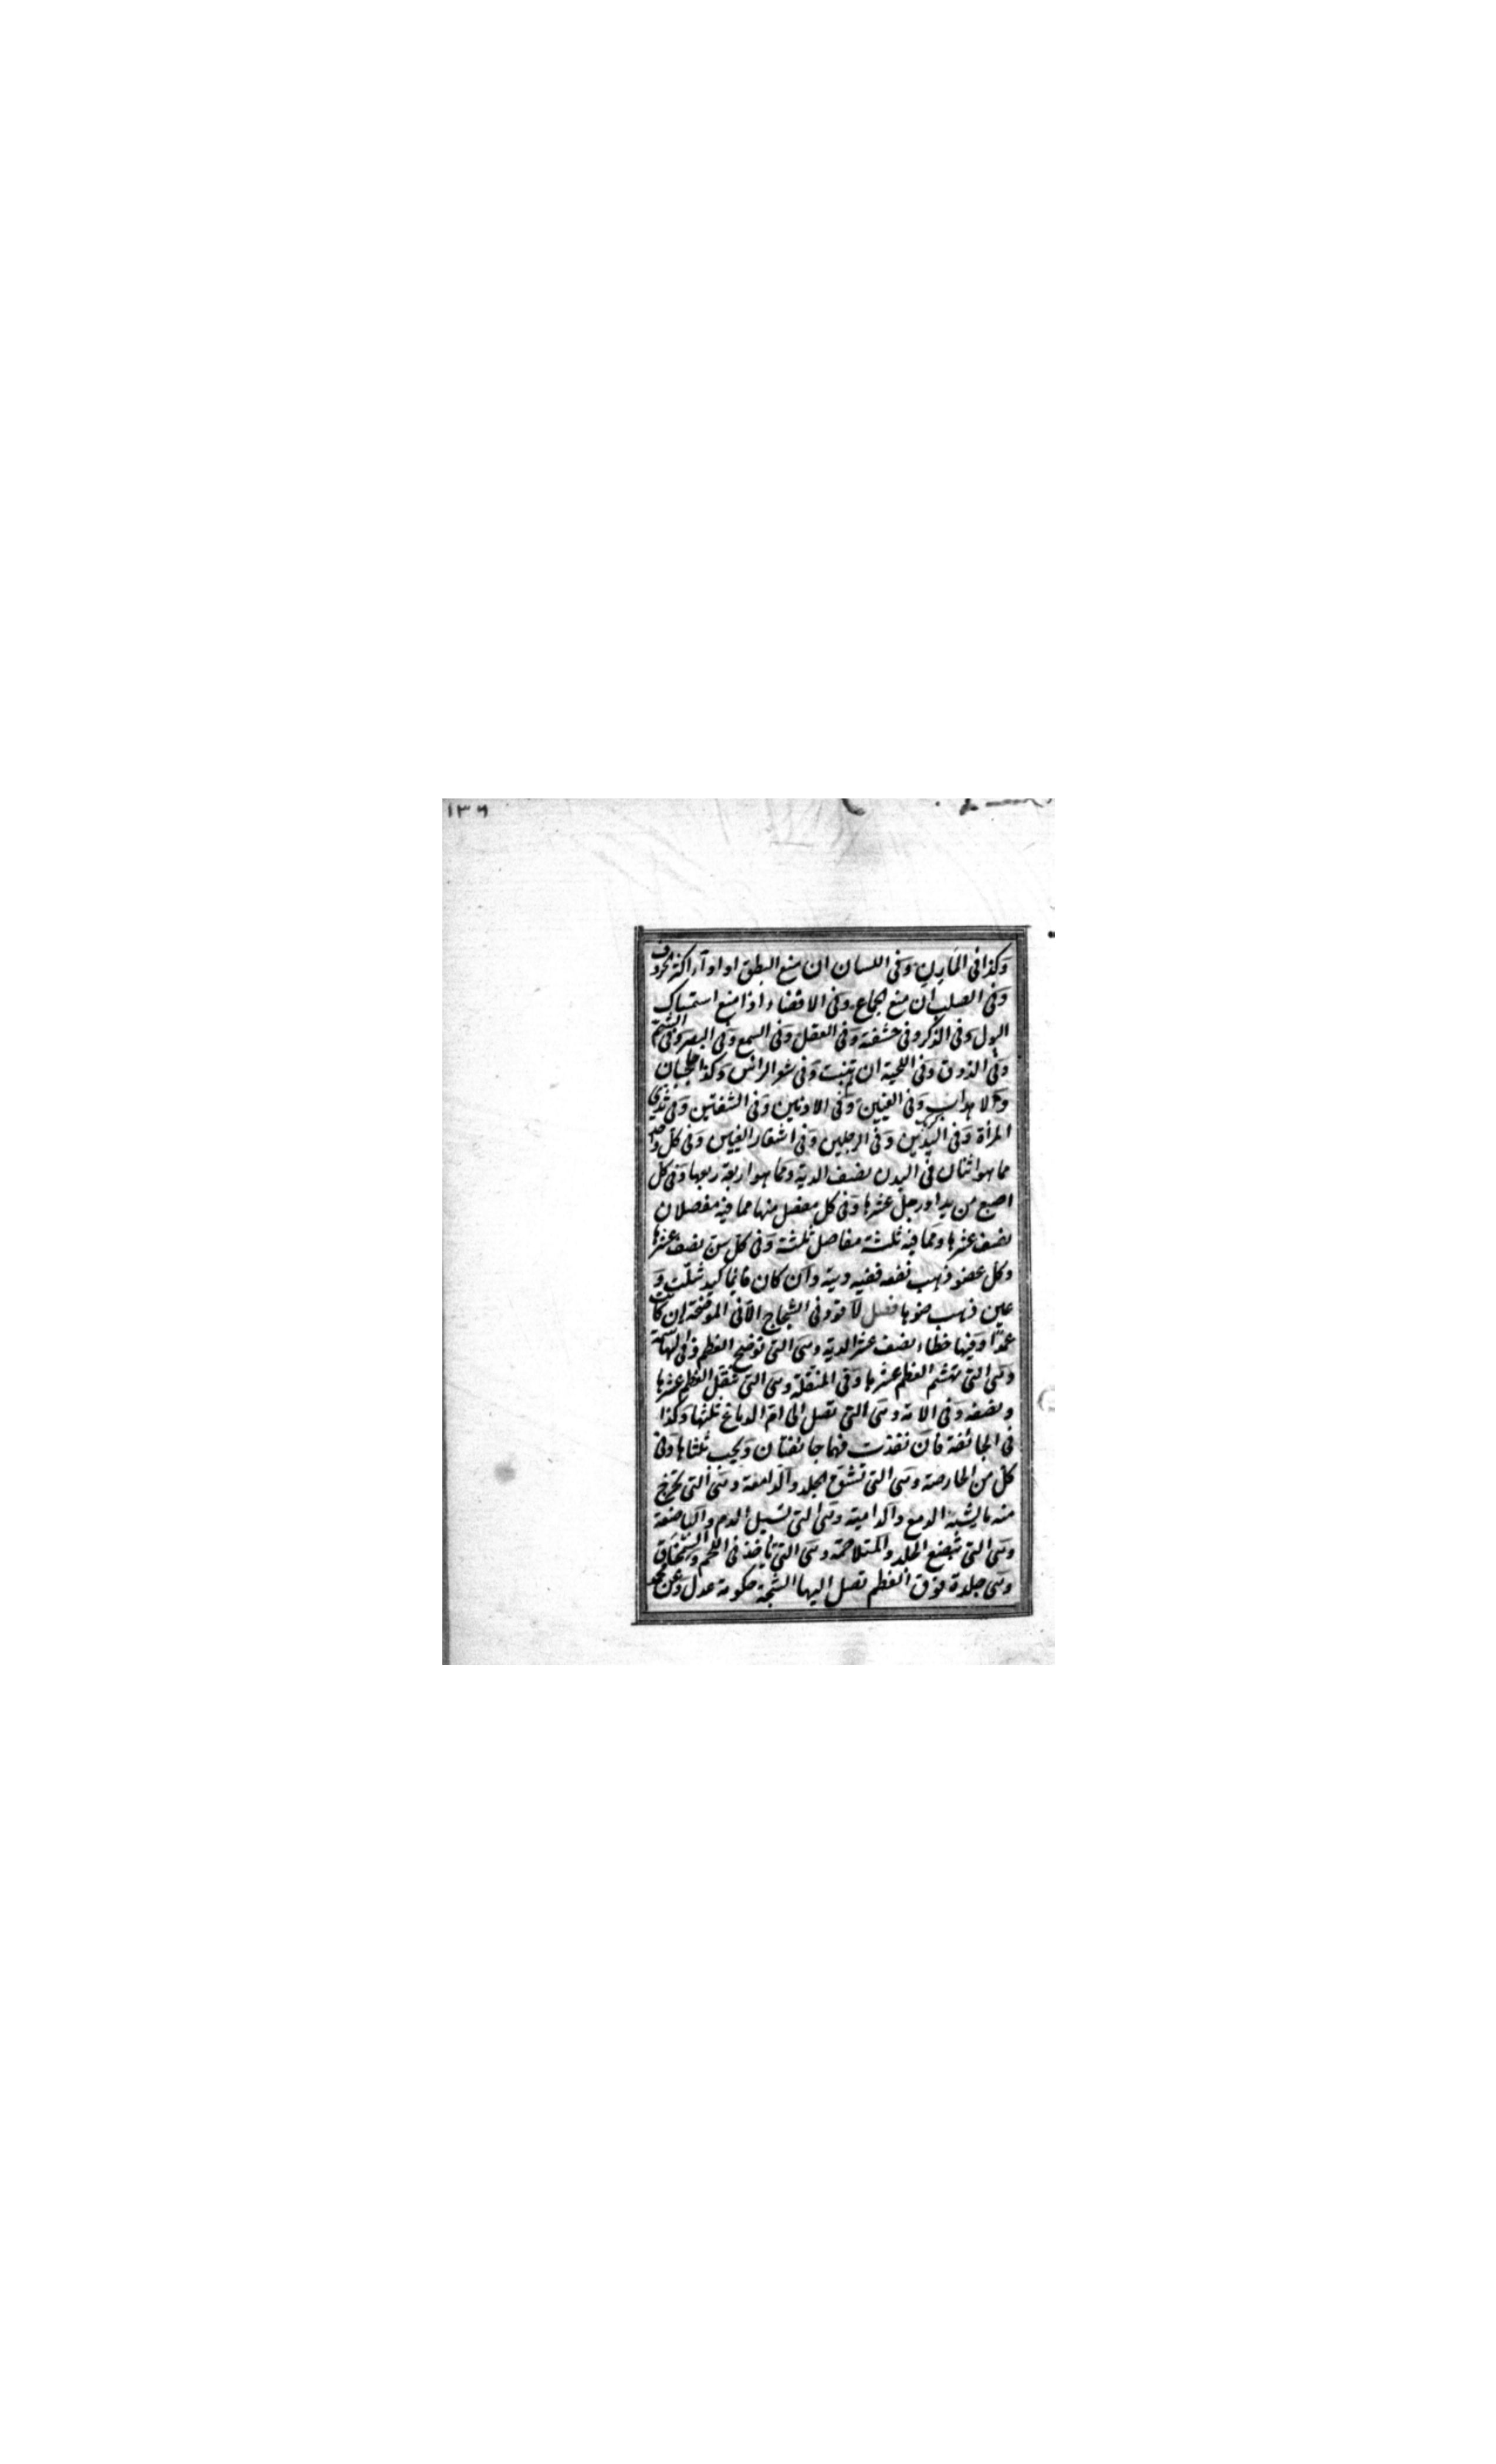 ١٣٦
وكذا في المارن وفي اللسان ان منع النطق او اداء اكثر الحروف
وفي الصلب ان منع الجماع وفي الافضاء اذا منع استمساك
البول وفي الذكر وفي حشفته وفي العقل وفي السمع وفي البصر وفي الشم
وفي الذوق وفي اللحية ان لم تنبت وفي شعر الراس وكذا الحاجبان
والاهداب وفي العينين وفي الاذنين وفي الشفتين وفي ثديي
المرأة وفي اليدين وفي الرجلين وفي اشفار العينين وفي كل واحد
مما هو اثنان في البدن نصف الدية ومما هو اربعة ربعها وفي كل
اصبع من يد او رجل عشرها وفي كل مفصل منها مما فيه مفصلان
نصف عشرها ومما فيه ثلثة مفاصل ثلثه وفي كل سن نصف عشرها
وكل عضو ذهب نفعه ففيه دية وان كان قائما كيد شلت و
عين ذهب ضوءها فصل لا قود في الشجاج الا في الموضحة ان كانت
عمدا وفيها خطاء نصف عشر الدية وهي التي توضح العظم وفي الهاشمة
وهي التي تهشم العظم عشرها وفي المنقلة وهي التي تنقل العظم عشرها
ونصفه وفي الامة وهي التي تصل الى ام الدماغ ثلثها وكذا
في الجائفة فان نفذت فهما جائفتان ويجب ثلثاها وفي
كل من الحارصة وهي التي تشق الجلد والدامعة وهي التي تخرج
منه ما يشبه الدمع والدامية وهي التي تسيل الدم والباضعة
وهي التي تبضع الجلد والمتلاحمة وهي التي تاخذ في اللحم والسمحاق
وهي جلدة فوق العظم تصل اليها الشجة حكومة عدل وعن محمد